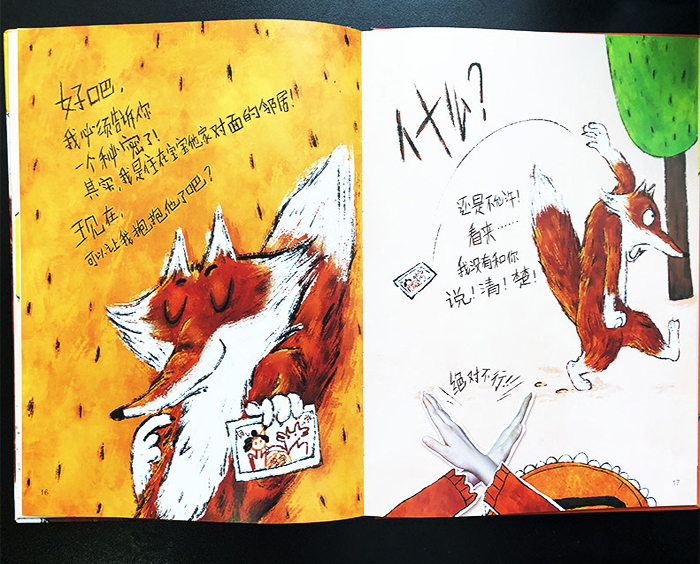 好吧，
我必须告诉你
一个秘密了！
其实，我是住在宝宝他家对面的邻居！
现在，
可以让我抱抱他了吧？
16
什么？
还是不允许！
看来……
我没有和你
说！清！楚！
绝对不行！！
17